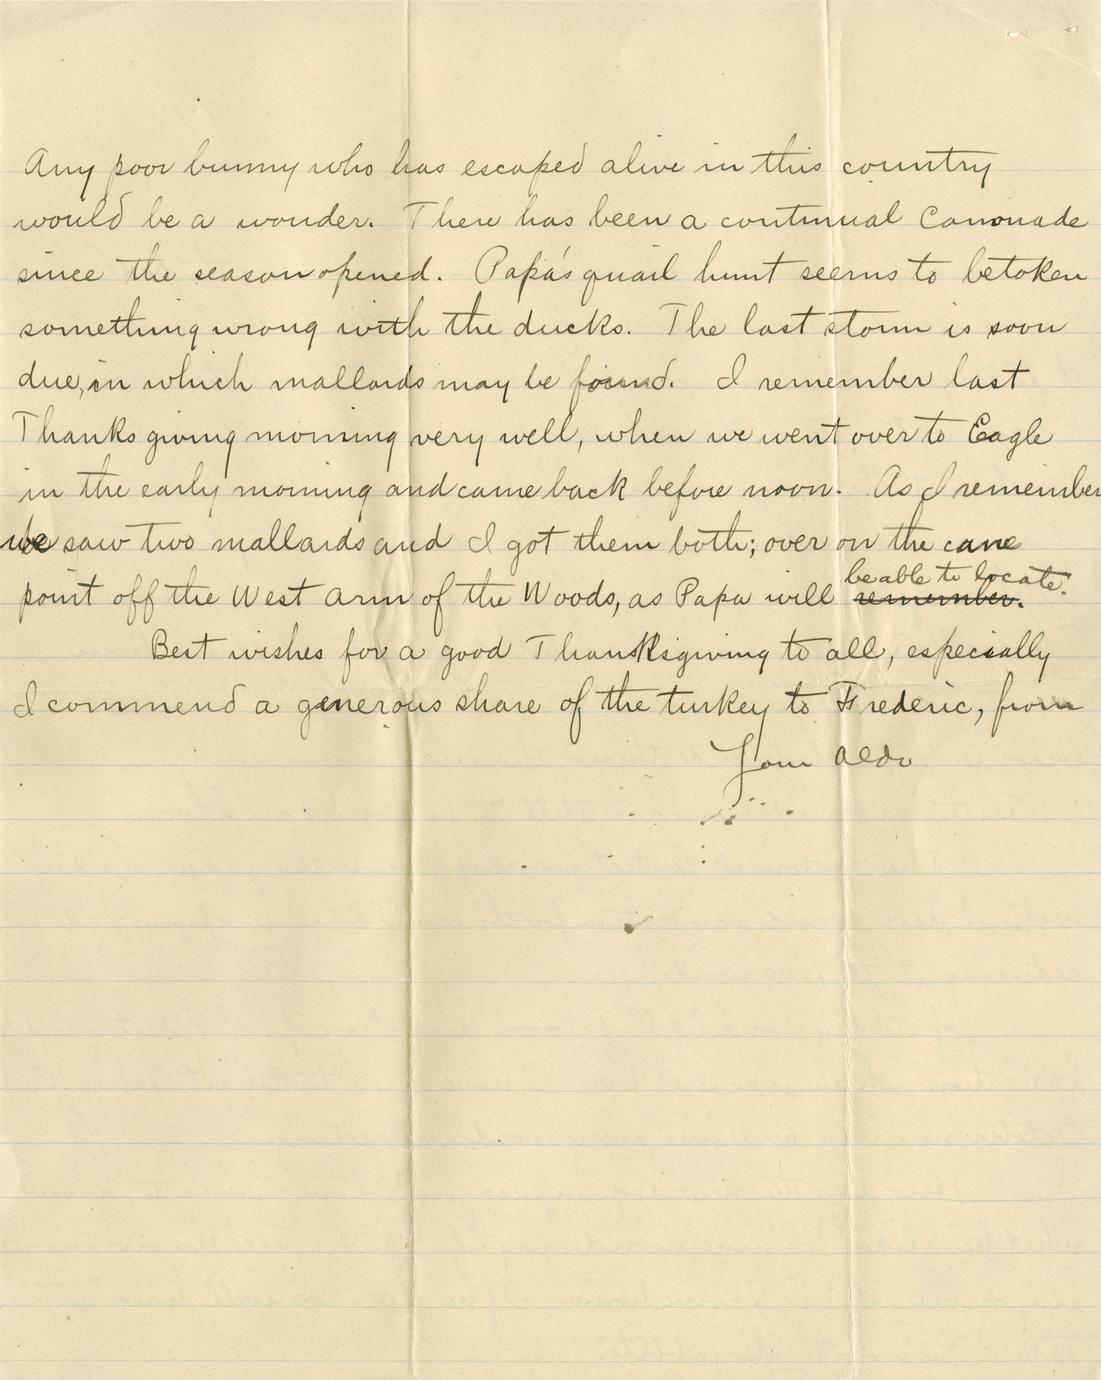 Any poor bunny who has escaped alive in this country
would be a wonder. There has been a continual Canonade
since the season opened. Papa's quail hunt seems to betoken
something wrong with the ducks. The last storm is soon
due, in which mallards may be found. I remember last
Thanksgiving morning very well, when we went over to Eagle
in the early morning and came back before noon. As I remember
we saw two mallards and I got them both; over on the cane
be able to locate.
point off the West arm of the Woods, as Papa will remember.
Best wishes for a good Thanksgiving to all, especially
I commend a generous share of the turkey to Frederic, from
Your Aldo